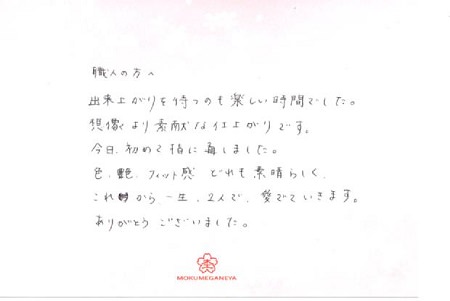 職人の方へ
出来上がりを待つのも楽しい時間でした。
想像より素敵な仕上がりです。
今日、初めて指に通しました。
色、艶、フィット感 どれも素晴らしく、
これから一生、2人で、愛でていきます。
ありがとうございました。
MOKUMEGANEYA